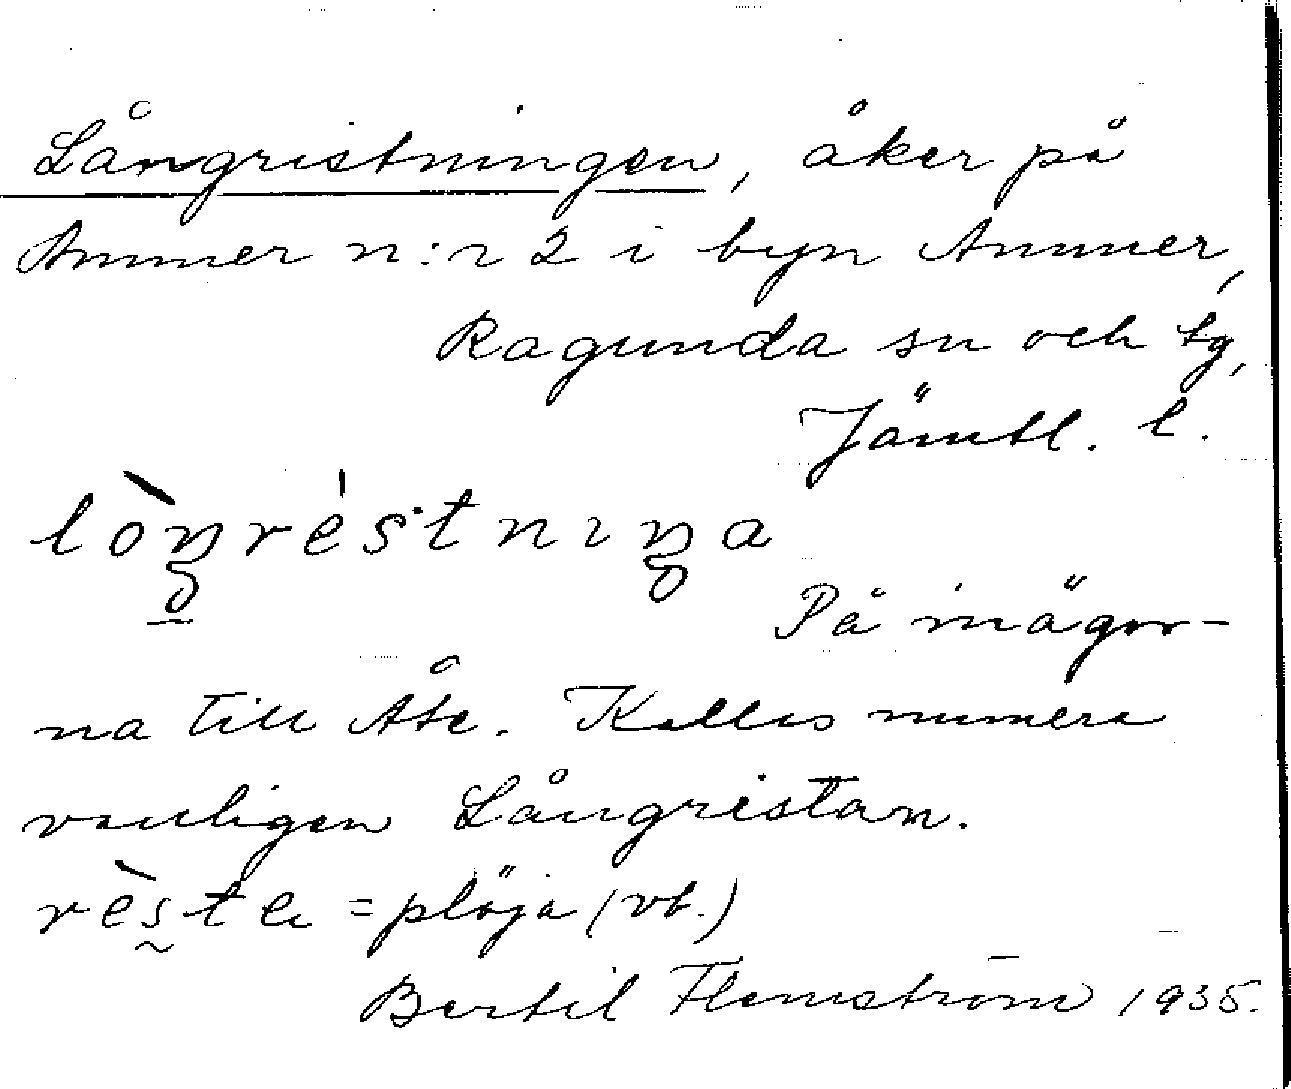 Långristningen, åker på
Ammer n:r 2 i byn Ammer,
Ragunda sn och tg,
Jämtl. l.
lòŋrèstnıŋa
På inägor-
na till Åte. Kallas numera
vanligen Långristan.
rèste = plöja (vb.)
Bertil Flemström 1935.